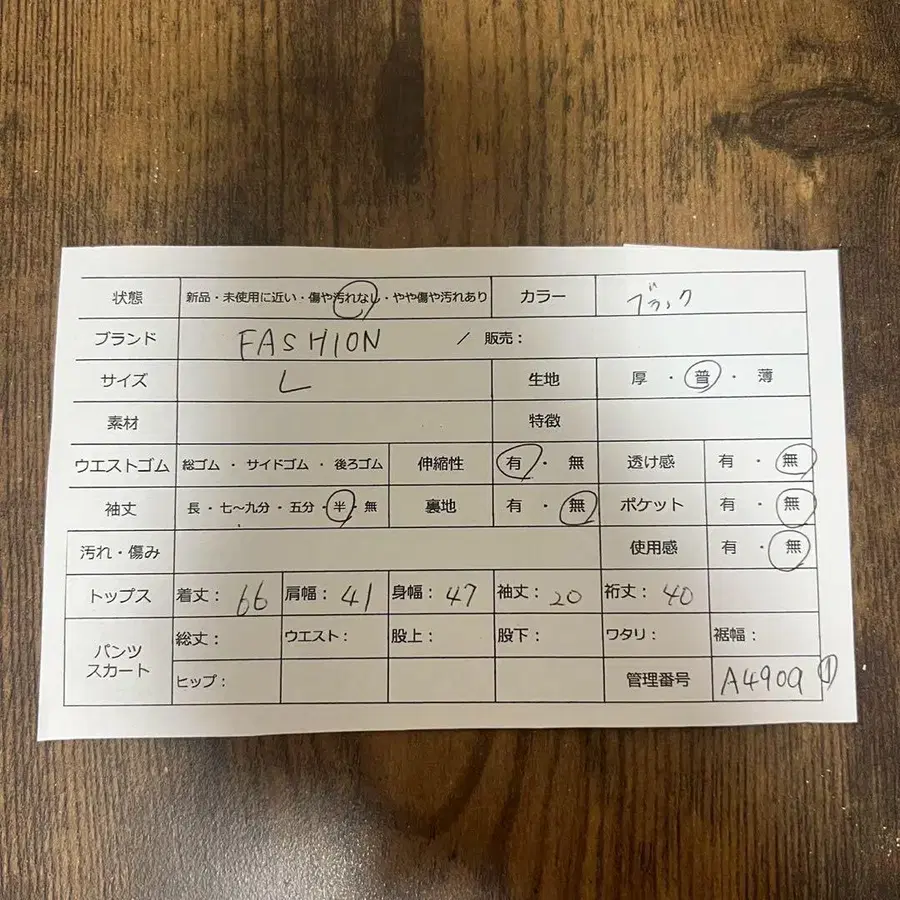 状態 新品・未使用に近い・傷や汚れなし・やや傷や汚れあり カラー ブラック
ブランド FASHION / 販売：
サイズ L 生地 厚 ・ 普 ・ 薄
素材 特徴
ウエストゴム 総ゴム ・ サイドゴム ・ 後ろゴム 伸縮性 有 ・ 無 透け感 有 ・ 無
袖丈 長・七〜九分・五分・半・無 裏地 有 ・ 無 ポケット 有 ・ 無
汚れ・傷み 使用感 有 ・ 無
トップス 着丈：66 肩幅：41 身幅：47 袖丈：20 裄丈：40
パンツ
スカート
総丈： ウエスト： 股上： 股下： ワタリ： 裾幅：
ヒップ： 管理番号 A4909 ①